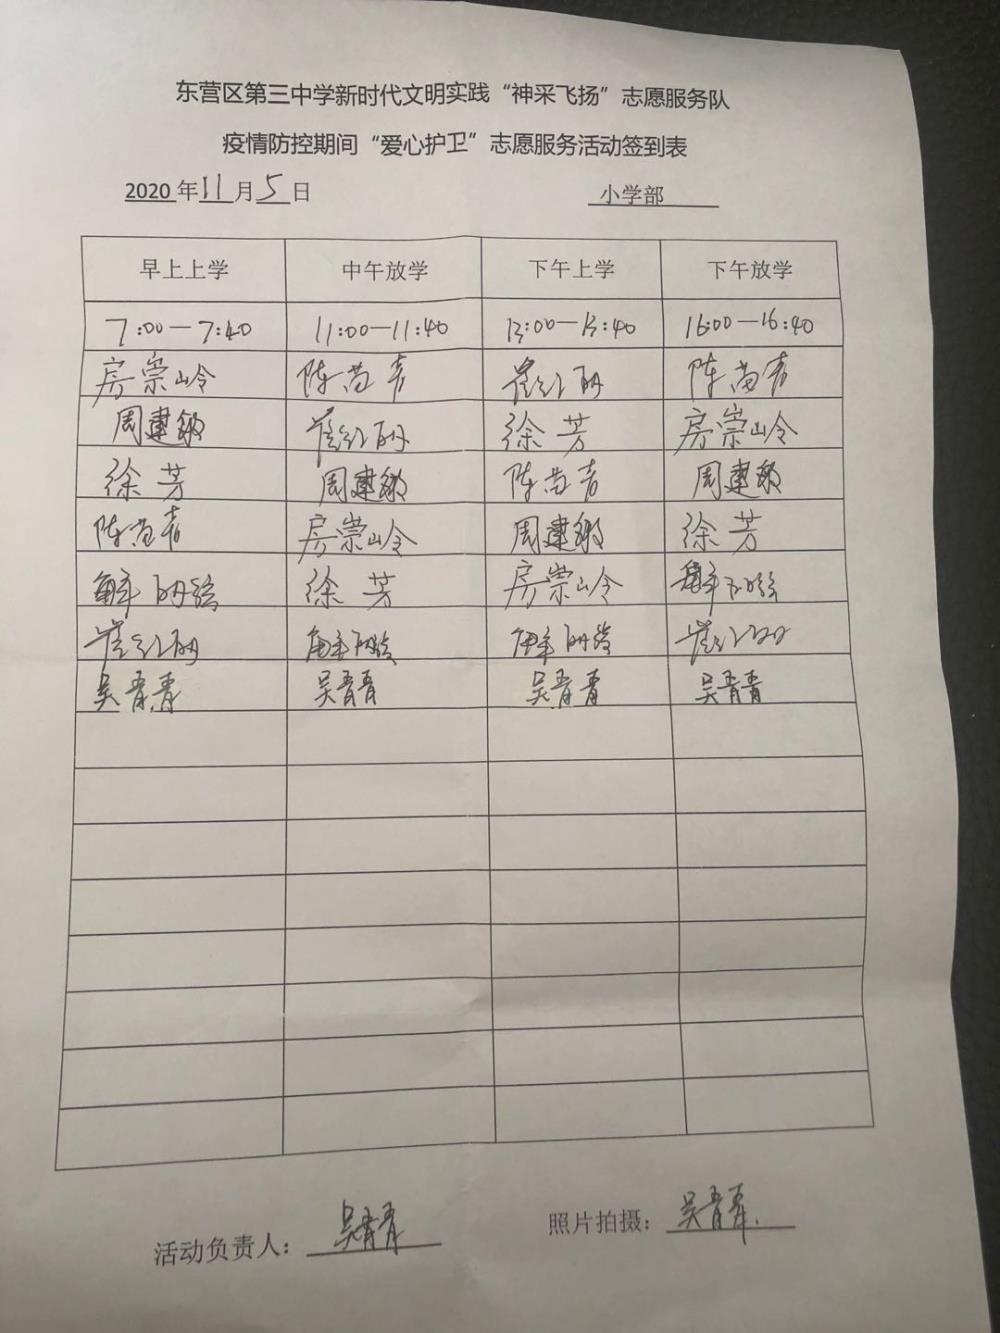 东营区第三中学新时代文明实践“神采飞扬”志愿服务队
疫情防控期间“爱心护卫”志愿服务活动签到表
2020年11月5日 小学部
早上上学 中午放学 下午上学 下午放学
7:00—7:40 11:00—11:40 13:00—13:40 16:00—16:40
房崇岭 陈苗青 崔红丽 陈苗青
周建敏 崔红丽 徐芳 房崇岭
徐芳 周建敏 陈苗青 周建敏
陈苗青 房崇岭 周建敏 徐芳
徐芳 房崇岭
崔红丽 崔红丽
吴青青 吴青青 吴青青 吴青青
活动负责人：吴青青 照片拍摄：吴青青